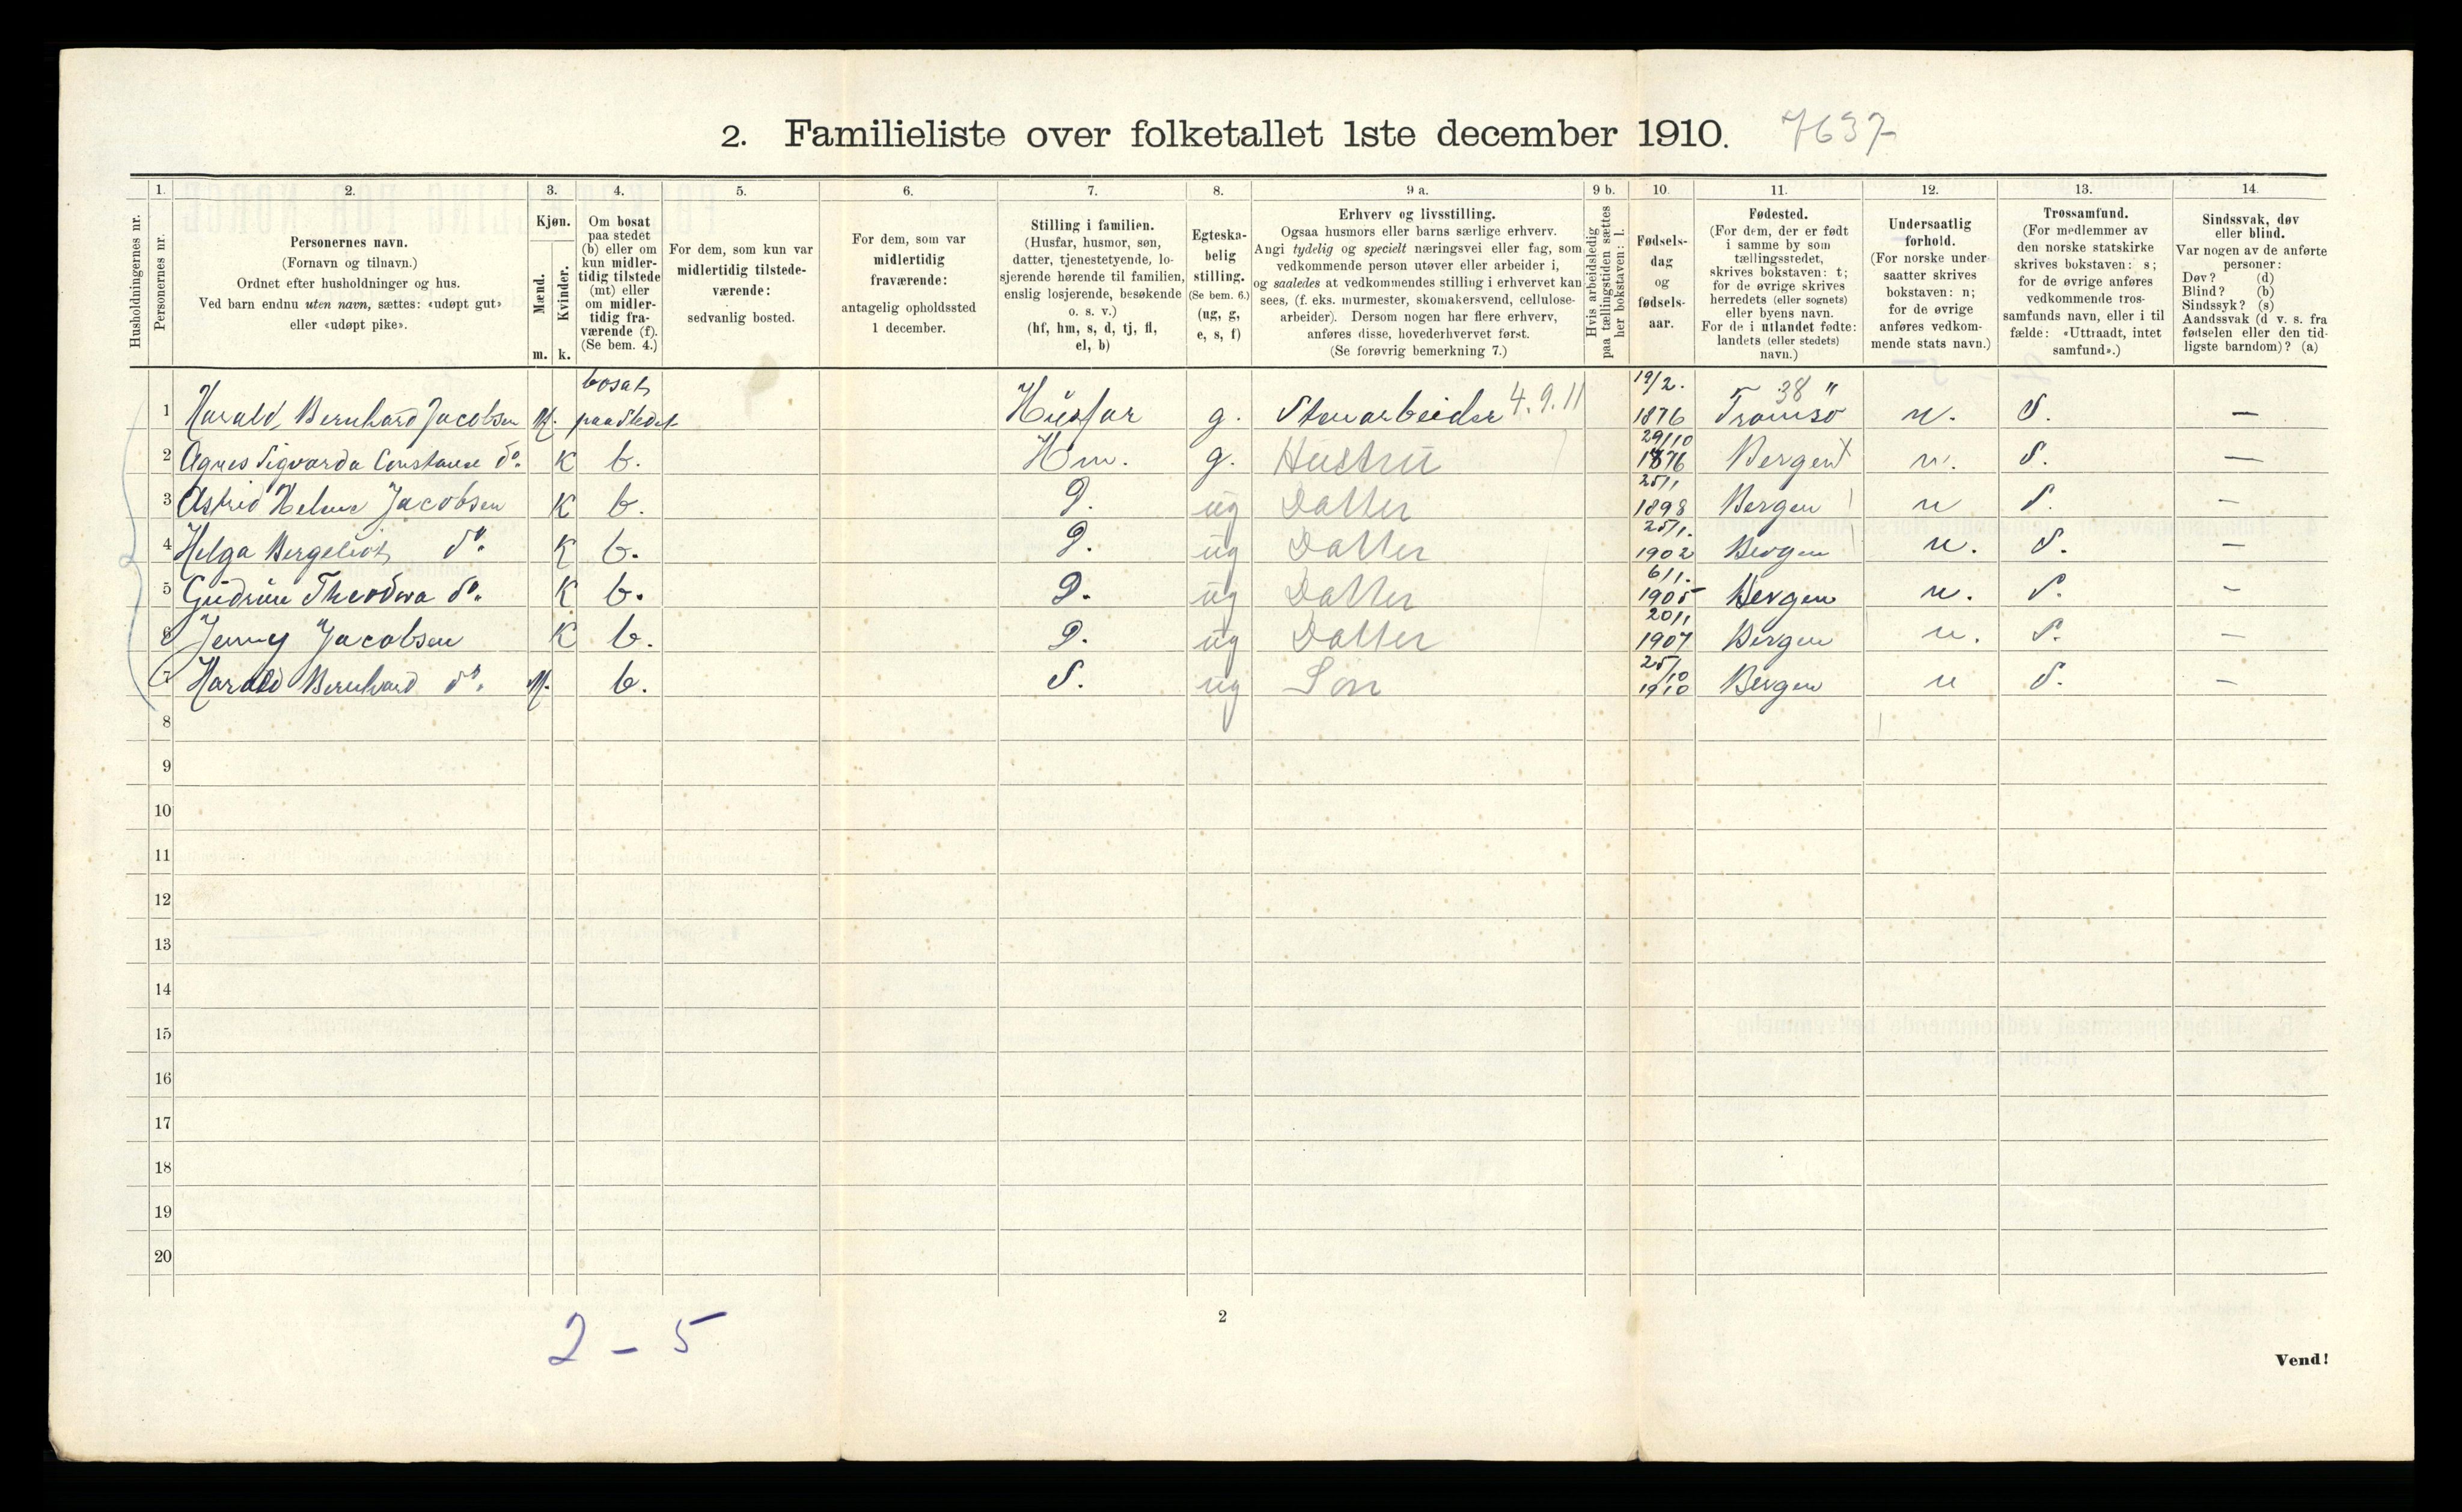 2. Familieliste over folketallet 1ste december 1910. 7637
1. 2. 3. 4. 5. 6. 7. 8. 9 a. 9 b. 10. 11. 12. 13. 14.
Husholdningernes nr.
Personernes nr.
Personernes navn.
(Fornavn og tilnavn.)
Ordnet efter husholdninger og hus.
Ved barn endnu uten navn, sættes: «udøpt gut»
eller «udøpt pike».
Kjøn.
Mænd.
m.
Kvinder.
k.
Om bosat
paa stedet
(b) eller om
kun midler-
tidig tilstede
(mt) eller
om midler-
tidig fra-
værende (f).
(Se bem. 4.)
For dem, som kun var
midlertidig tilstede-
værende:
sedvanlig bosted.
For dem, som var
midlertidig
fraværende:
antagelig opholdssted
1 december.
Stilling i familien.
(Husfar, husmor, søn,
datter, tjenestetyende, lo-
sjerende hørende til familien,
enslig losjerende, besøkende
o. s. v.)
(hf, hm, s, d, tj, fl,
el, b)
Egteska-
belig
stilling.
(Se bem. 6.)
(ug, g,
e, s, f)
Erhverv og livsstilling.
Ogsaa husmors eller barns særlige erhverv.
Angi tydelig og specielt næringsvei eller fag, som
vedkommende person utøver eller arbeider i,
og saaledes at vedkommendes stilling i erhvervet kan
sees, (f. eks. murmester, skomakersvend, cellulose-
arbeider). Dersom nogen har flere erhverv,
anføres disse, hovederhvervet først.
(Se forøvrig bemerkning 7.)
Hvis arbeidsledig
paa tællingstiden sættes
her bokstaven: l.
Fødsels-
dag
og
fødsels-
aar.
Fødested.
(For dem, der er født
i samme by som
tællingsstedet,
skrives bokstaven: t;
for de øvrige skrives
herredets (eller sognets)
eller byens navn.
For de i utlandet fødte:
landets (eller stedets)
navn.)
Undersaatlig
forhold.
(For norske under-
saatter skrives
bokstaven: n;
for de øvrige
anføres vedkom-
mende stats navn.)
Trossamfund.
(For medlemmer av
den norske statskirke
skrives bokstaven: s;
for de øvrige anføres
vedkommende tros-
samfunds navn, eller i til
fælde: «Uttraadt, intet
samfund».)
Sindssvak, døv
eller blind.
Var nogen av de anførte
personer:
Døv? (d)
Blind? (b)
Sindssyk? (s)
Aandssvak (d v. s. fra
fødselen eller den tid-
ligste barndom)? (a)
bosat 19/2. 38 "
1 Harald Bernhard Jacobsen M. paa stedet Husfar g. Stenarbeider 4.9.11 1876 Tromsø n. S. —
29/10
2 Agnes Sigvarda Constanse do. K b. Hm. g. Hustru 1876 Bergen n. S. —
25/1
3 Astrid Helene Jacobsen K b. D. ug Datter 1898 Bergen n S. —
25/1.
4 Helga Bergeliot do. K b. D. ug Datter 1902 Bergen n. S. —
6/1.
5 Gudrun Theodora do. K b. D. ug Datter 1905 Bergen n. S. —
20/1
6 Jenny Jacobsen K b. D. ug Datter 1907 Bergen n. S. —
25/10
7 Harald Bernhard do. M. b. S. ug Søn 1910 Bergen n S. —
8
9
10
11
12
13
14
15
16
17
18
19
20
2
2 - 5
Vend!